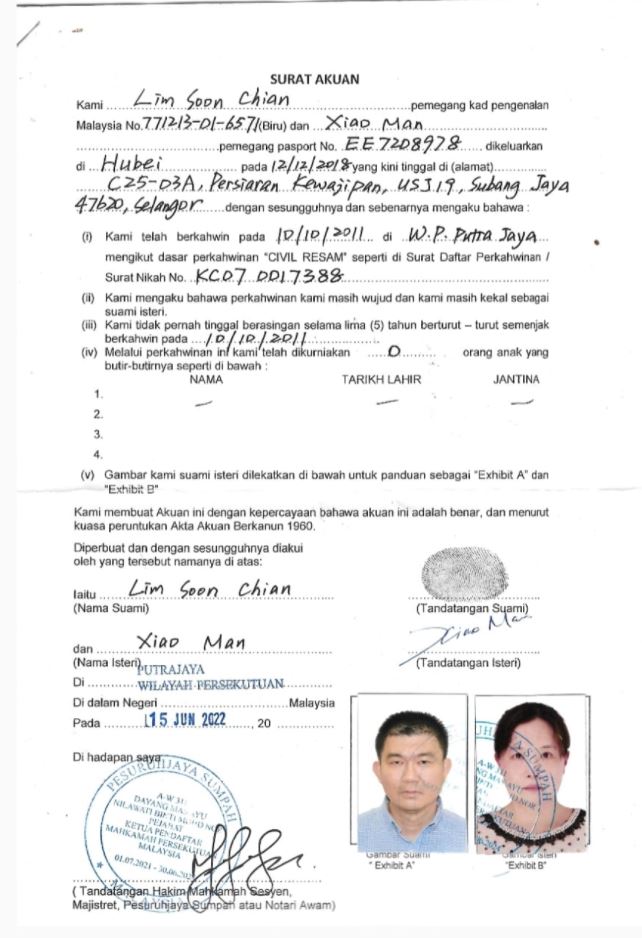 SURAT AKUAN
Kami Lim Soon Chian pemegang kad pengenalan
Malaysia No. 771213-01-6571 (Biru) dan Xiao Man
pemegang pasport No. EE7208978 dikeluarkan
di Hubei pada 12/12/2018 yang kini tinggal di (alamat)
C25-03A, Persiaran Kewajipan, USJ 19, Subang Jaya
47620, Selangor dengan sesungguhnya dan sebenarnya mengaku bahawa :
(i) Kami telah berkahwin pada 10/10/2011 di W.P. Putra Jaya
mengikut dasar perkahwinan "CIVIL RESAM" seperti di Surat Daftar Perkahwinan /
Surat Nikah No. KC07 0017388
(ii) Kami mengaku bahawa perkahwinan kami masih wujud dan kami masih kekal sebagai
suami isteri.
(iii) Kami tidak pernah tinggal berasingan selama lima (5) tahun berturut – turut semenjak
berkahwin pada 10/10/2011
(iv) Melalui perkahwinan ini kami telah dikurniakan 0 orang anak yang
butir-butirnya seperti di bawah :
NAMA TARIKH LAHIR JANTINA
1. — — —
2.
3.
4.
(v) Gambar kami suami isteri dilekatkan di bawah untuk panduan sebagai "Exhibit A" dan
"Exhibit B"
Kami membuat Akuan ini dengan kepercayaan bahawa akuan ini adalah benar, dan menurut
kuasa peruntukan Akta Akuan Berkanun 1960.
Diperbuat dan dengan sesungguhnya diakui
oleh yang tersebut namanya di atas:
Iaitu Lim Soon Chian
(Nama Suami) (Tandatangan Suami)
Xiao Man
dan Xiao Man
(Nama Isteri) (Tandatangan Isteri)
PUTRAJAYA
Di WILAYAH PERSEKUTUAN
Di dalam Negeri Malaysia
Pada 15 JUN 2022, 20
Di hadapan saya,
PESURUHJAYA SUMPAH
A-W 311
DAYANG
NILAWATI BINTI MOHD NOR
PEJABAT
KETUA PENDAFTAR
MAHKAMAH PERSEKUTUAN
MALAYSIA
01.07.2021 - 30.06.202
MALAYSIA
Gambar Suami Gambar Isteri
" Exhibit A" "Exhibit B"
( Tandatangan Hakim Mahkamah Sesyen,
Majistret, Pesuruhjaya Sumpah atau Notari Awam)